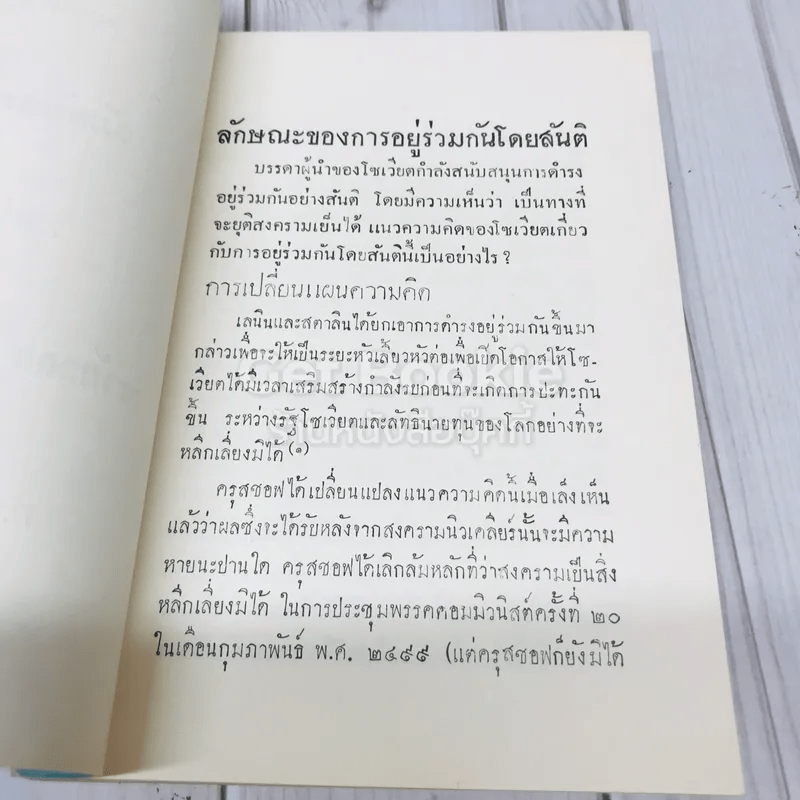 ลักษณะของการอยู่ร่วมกันโดยสันติ
บรรดาผู้นำของโซเวียตกำลังสนับสนุนการดำรง
อยู่ร่วมกันอย่างสันติ โดยมีความเห็นว่า เป็นทางที่
จะยุติสงครามเย็นได้ แนวความคิดของโซเวียตเกี่ยว
กับการอยู่ร่วมกันโดยสันตินี้เป็นอย่างไร ?
การเปลี่ยนแผนความคิด
เลนินและสตาลินได้ยกเอาการดำรงอยู่ร่วมกันขึ้นมา
กล่าวเพื่อจะให้เป็นระยะหัวเลี้ยวหัวต่อเพื่อเปิดโอกาสให้โซ-
เวียตได้มีเวลาเสริมสร้างกำลังรบก่อนที่จะเกิดการปะทะกัน
ขึ้น ระหว่างรัฐโซเวียตและลัทธินายทุนของโลกอย่างที่จะ
หลีกเลี่ยงมิได้ (๑)
ครุสชอฟได้เปลี่ยนแปลงแนวความคิดนี้เมื่อเล็งเห็น
แล้วว่าผลซึ่งจะได้รับหลังจากสงครามนิวเคลียร์นั้นจะมีความ
หายนะปานใด ครุสชอฟได้เลิกล้มหลักที่ว่าสงครามเป็นสิ่ง
หลีกเลี่ยงมิได้ ในการประชุมพรรคคอมมิวนิสต์ครั้งที่ ๒๐
ในเดือนกุมภาพันธ์ พ.ศ. ๒๔๙๙ (แต่ครุสชอฟก็ยังมิได้
Get Bookie
ร้านหนังสือบุ๊คกี้